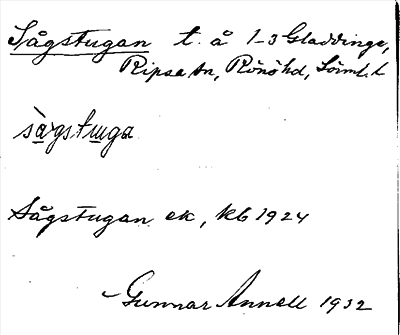 Sågstugan t. å 1-3 Gladdinge,
Ripsa sn, Rönö hd, Sörml. l
sàgstuga
Sågstugan ek, kb 1924
Gunnar Annell 1932